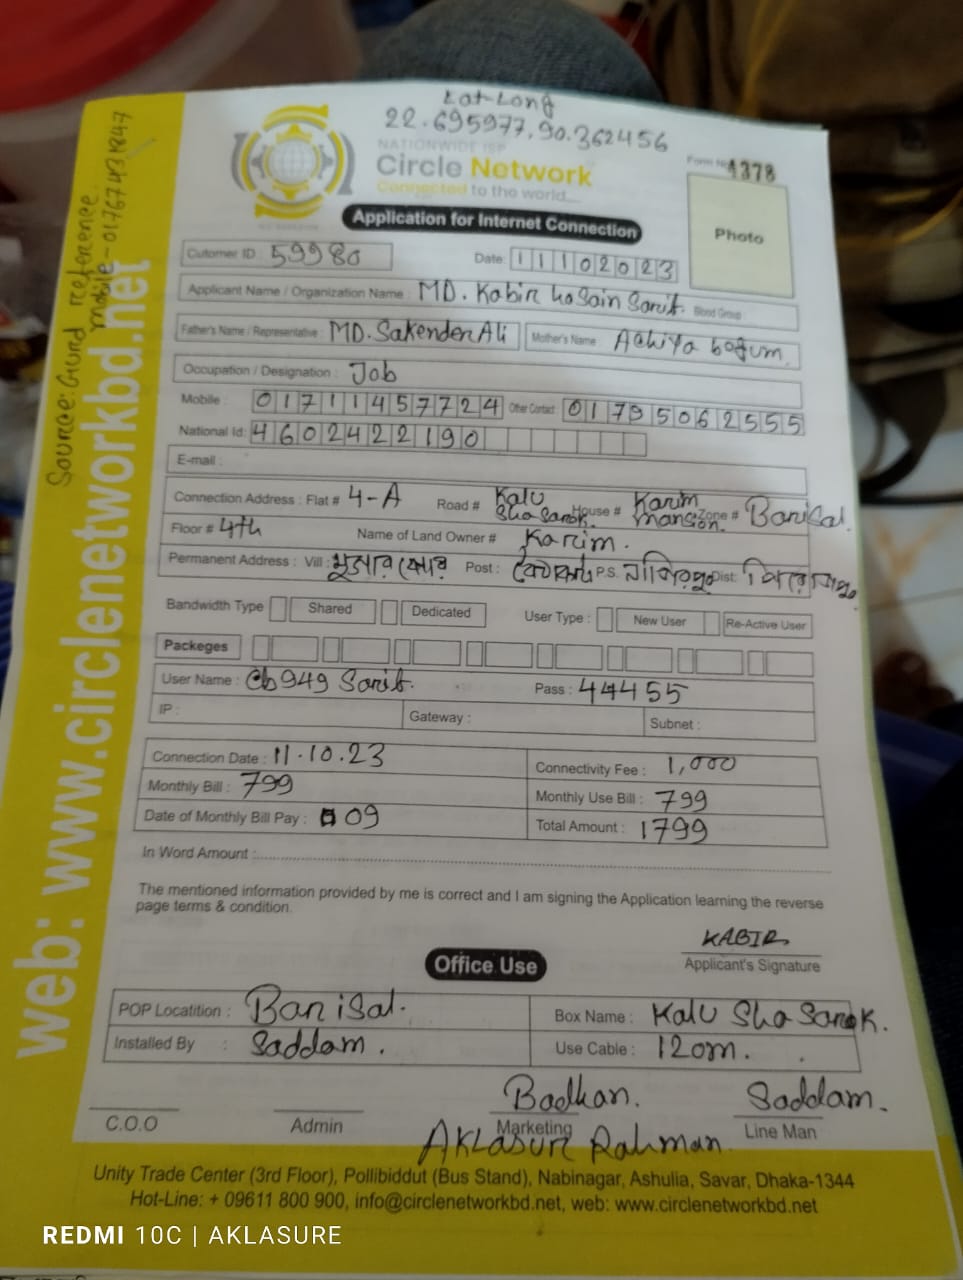 Lat-Long
22.695977,90.362456
NATIONWIDE ISP
Circle Network
Connected to the world...
Form No 4378
Photo
Application for Internet Connection
Cutomer ID : 59980 Date: 11102023
Applicant Name / Organization Name : MD. Kabir hosain Sarif. Blood Group :
Father's Name / Representative : MD. Sakender Ali Mother's Name Achiya begum.
Occupation / Designation : Job
Mobile : 01711457724 Other Contact : 01795062555
National Id: 4602422190
E-mail :
Connection Address : Flat # 4-A Road # Kalu Sha Sarok. House # Karim mansion. Zone # Barisal.
Floor # 4th Name of Land Owner # Karim.
Permanent Address : Vill : Post : P.S. Dist:
Bandwidth Type Shared Dedicated User Type : New User Re-Active User
Packeges
User Name : Cb949 Sarif. Pass : 44455
IP : Gateway : Subnet :
Connection Date : 11.10.23 Connectivity Fee : 1,000
Monthly Bill : 799 Monthly Use Bill : 799
Date of Monthly Bill Pay : 09 Total Amount : 1799
In Word Amount :
The mentioned information provided by me is correct and I am signing the Application learning the reverse
page terms & condition.
KABIR
Applicant's Signature
Office Use
POP Locatition : Barisal. Box Name : Kalu Sha Sarok.
Installed By : Saddam. Use Cable : 120m.
Badhan. Saddam.
C.O.O Admin Marketing Line Man
AKLASUR Rahman
Unity Trade Center (3rd Floor), Pollibiddut (Bus Stand), Nabinagar, Ashulia, Savar, Dhaka-1344
Hot-Line: + 09611 800 900, info@circlenetworkbd.net, web: www.circlenetworkbd.net
web: www.circlenetworkbd.net
Source: Gurd reference.
mobile-01767431847
REDMI 10C | AKLASURE